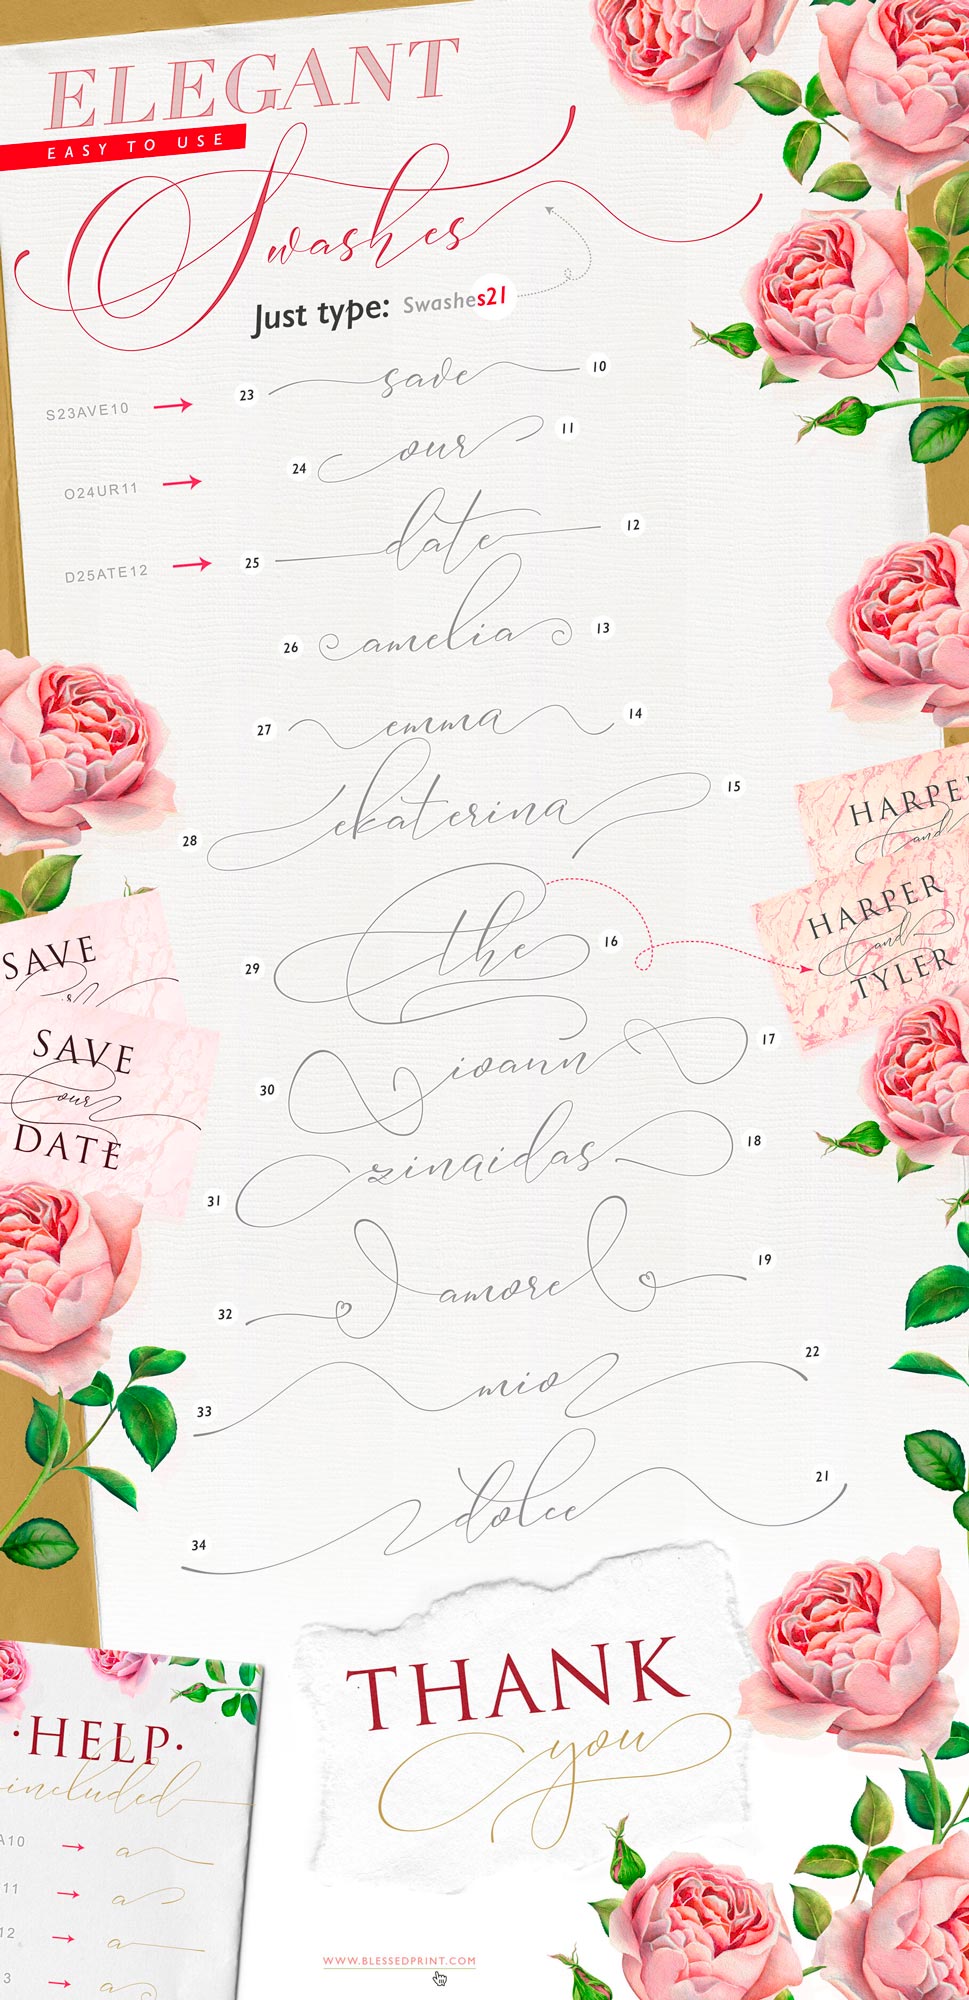 ELEGANT
EASY TO USE
Swashes
Just type: Swashes21
S23AVE10 23 save 10
O24UR11 24 our 11
D25ATE12 25 date 12
26 amelia 13
27 emma 14
28 ekaterina 15
HARPE
and
29 the 16
HARPER
and
TYLER
SAVE
30 ioann 17
SAVE
our
DATE
31 zinaidas 18
32 amore 19
33 mio 22
34 dolce 21
THANK
you
·HELP·
included
A10 a
11 a
12 a
3 a
WWW.BLESSEDPRINT.COM